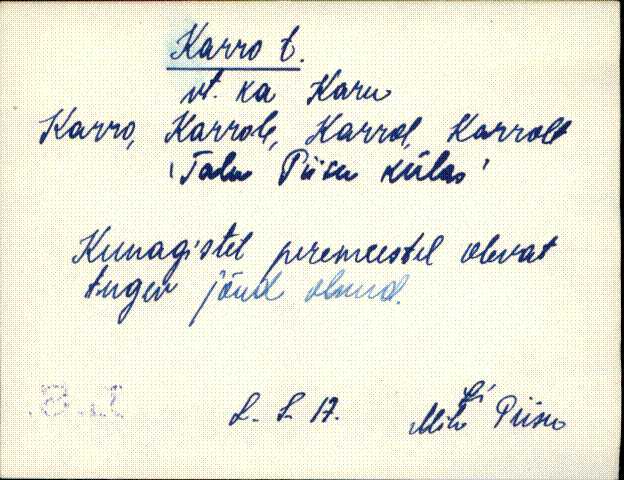 Karro t.
vt. ka Karu
Karro, Karrole, Karrol, Karrolt
'Talu Piisu külas'
Kunagistel peremeestel olevat
tugev jõud olnud.
L. L. 17.
Piisu